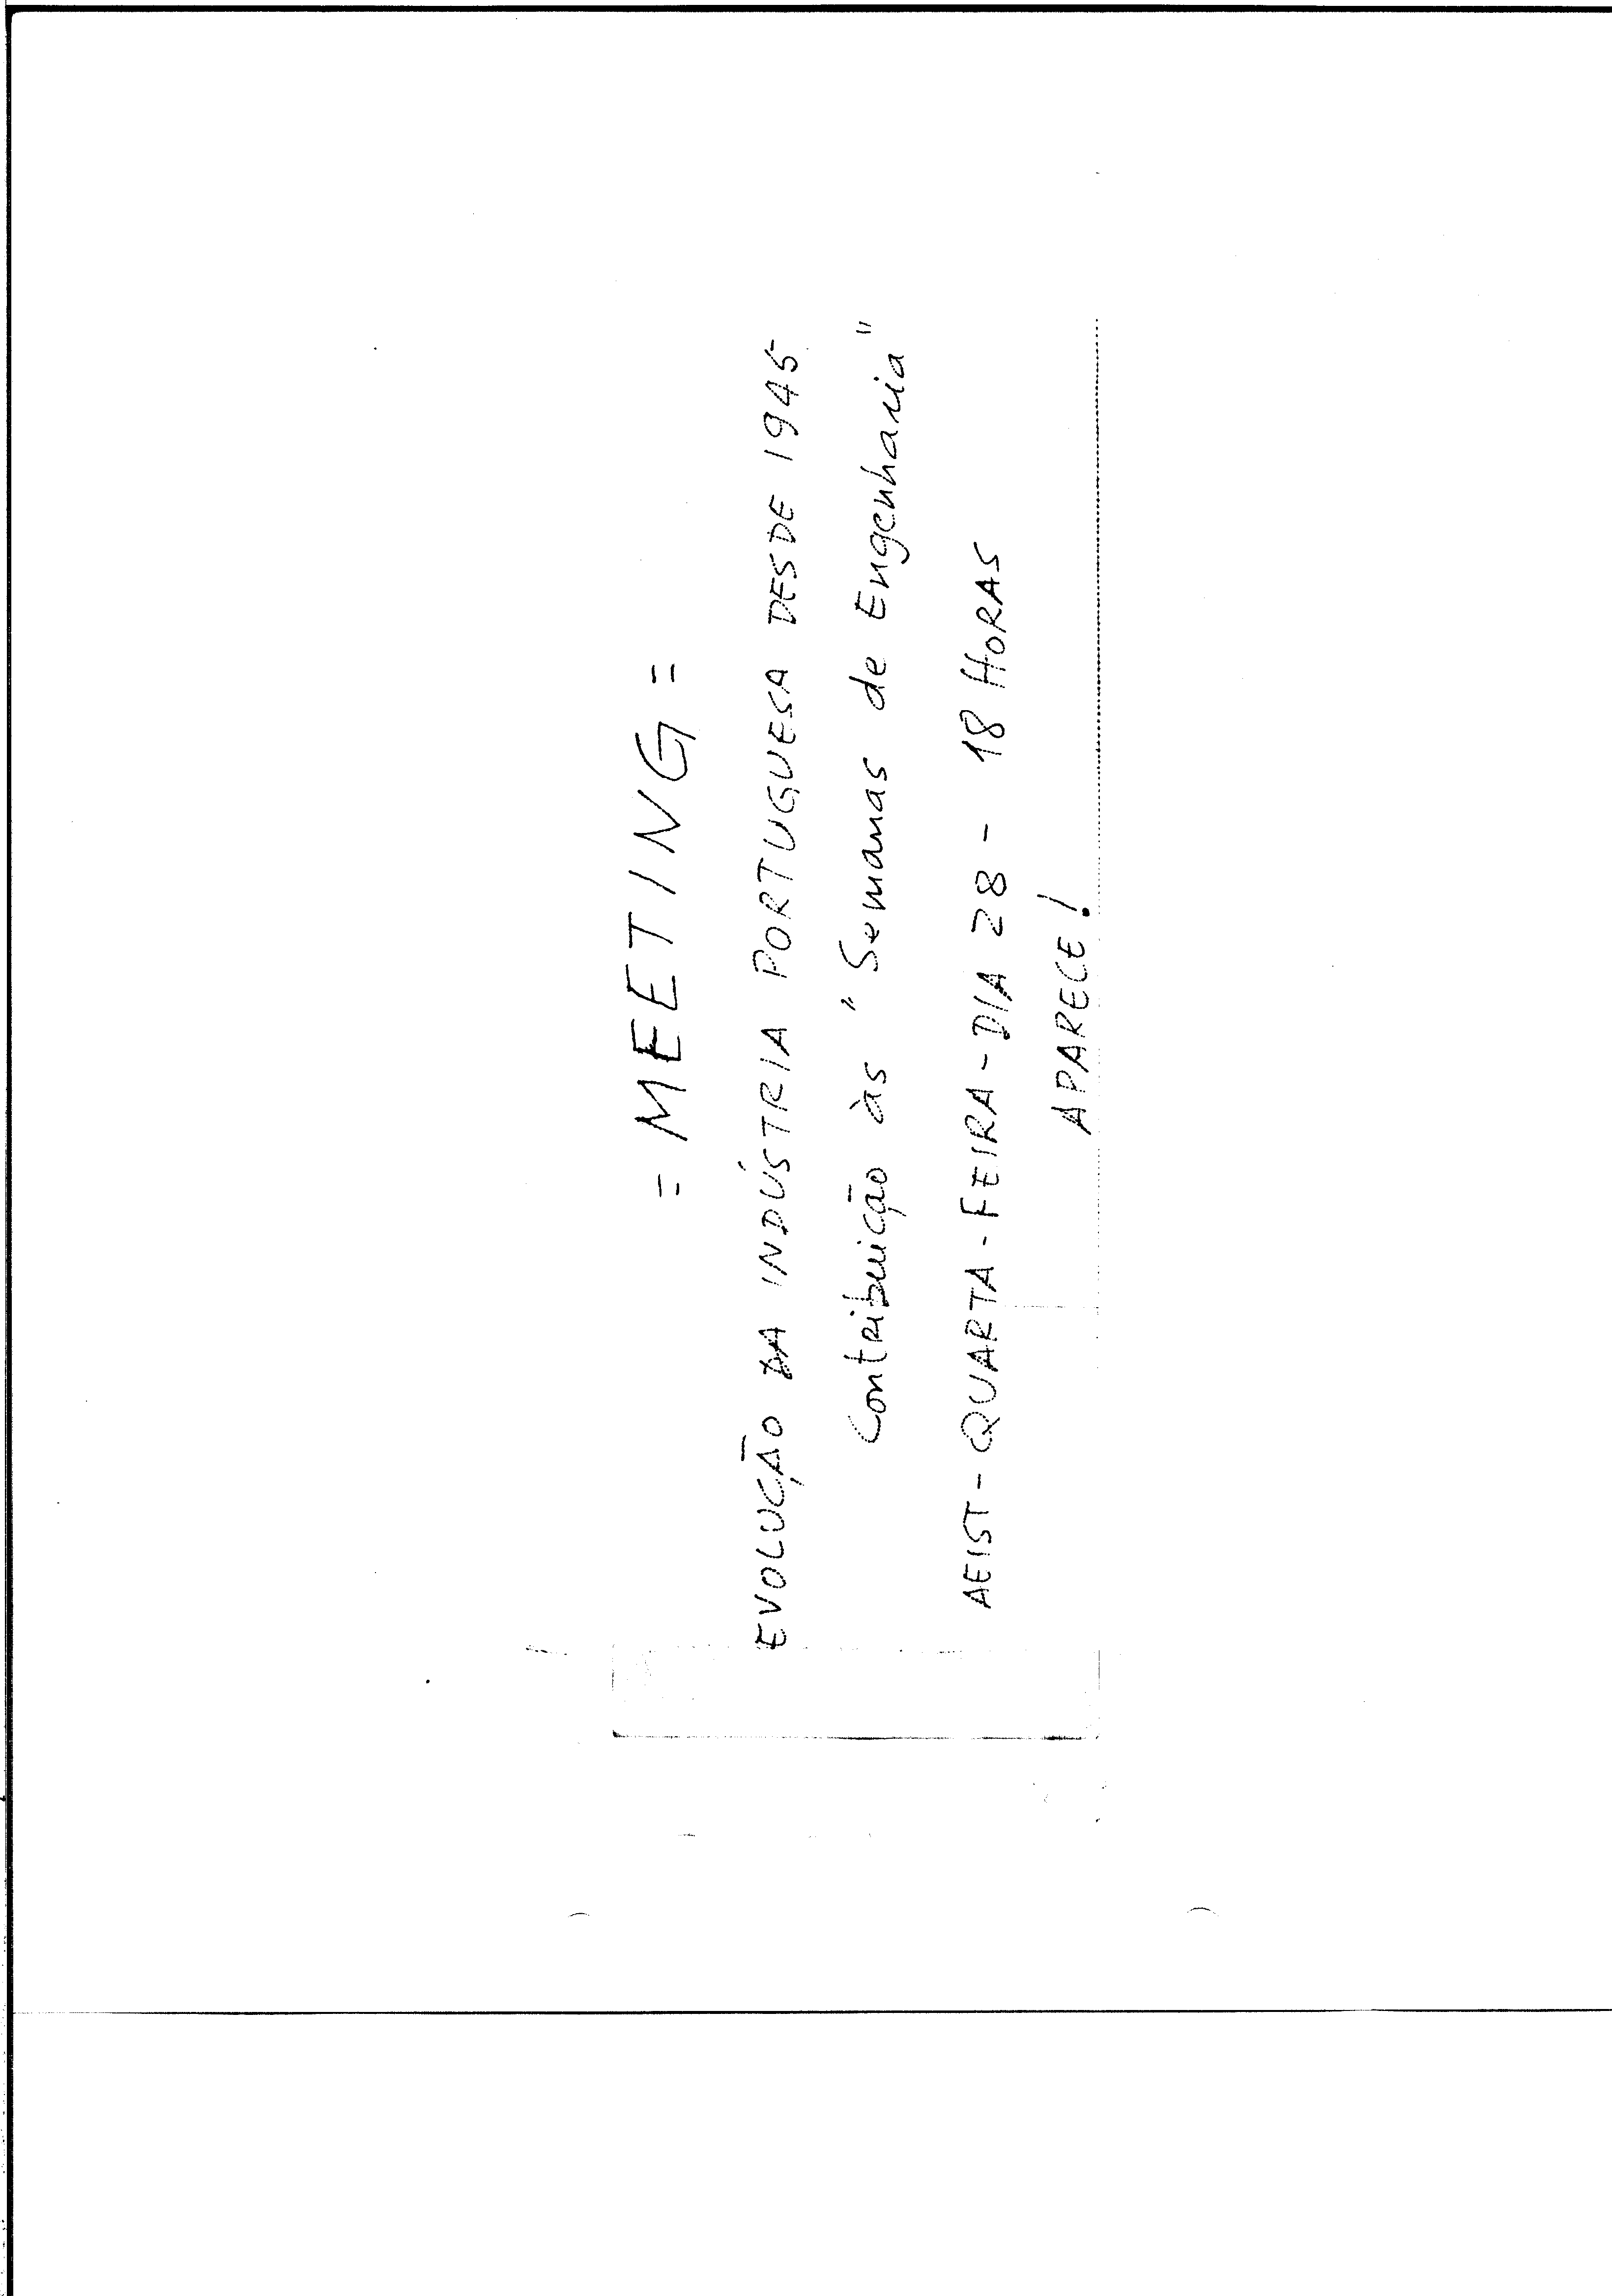 = MEETING =
EVOLUÇÃO DA INDÚSTRIA PORTUGUESA DESDE 1945
Contribuição às "Semanas de Engenharia"
AEIST - QUARTA - FEIRA - DIA 28 - 18 HORAS
APARECE!